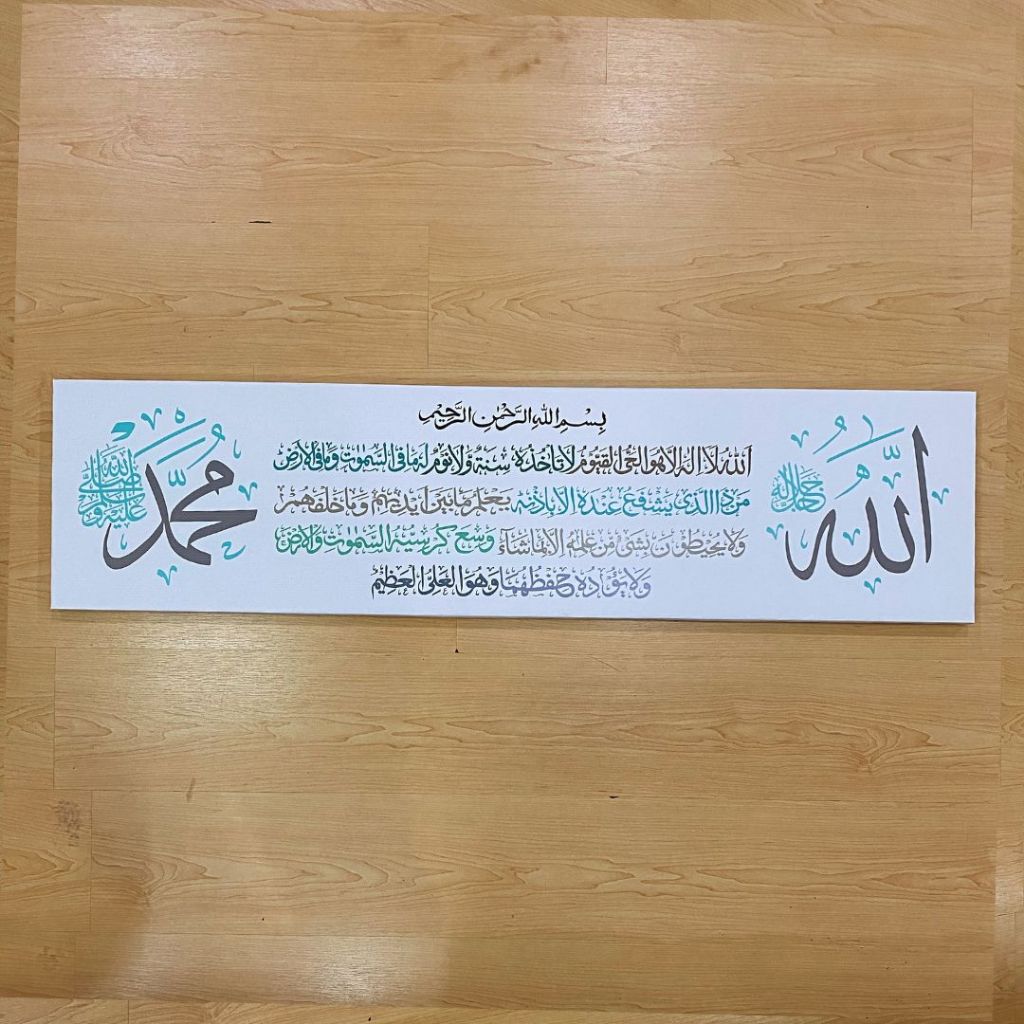 الله
جل جلاله
بِسْمِ اللهِ الرَّحْمٰنِ الرَّحِيْمِ
اَللهُ لَآ اِلٰهَ اِلَّا هُوَ الْحَيُّ الْقَيُّوْمُ لَا تَأْخُذُهٗ سِنَةٌ وَّلَا نَوْمٌ لَهٗ مَا فِى السَّمٰوٰتِ وَمَا فِى الْاَرْضِ
مَنْ ذَا الَّذِيْ يَشْفَعُ عِنْدَهٗٓ اِلَّا بِاِذْنِهٖ يَعْلَمُ مَا بَيْنَ اَيْدِيْهِمْ وَمَا خَلْفَهُمْ
وَلَا يُحِيْطُوْنَ بِشَيْءٍ مِّنْ عِلْمِهٖٓ اِلَّا بِمَا شَآءَ وَسِعَ كُرْسِيُّهُ السَّمٰوٰتِ وَالْاَرْضَ
وَلَا يَؤُدُهٗ حِفْظُهُمَا وَهُوَ الْعَلِيُّ الْعَظِيْمُ
محمد
صلى الله عليه وسلم